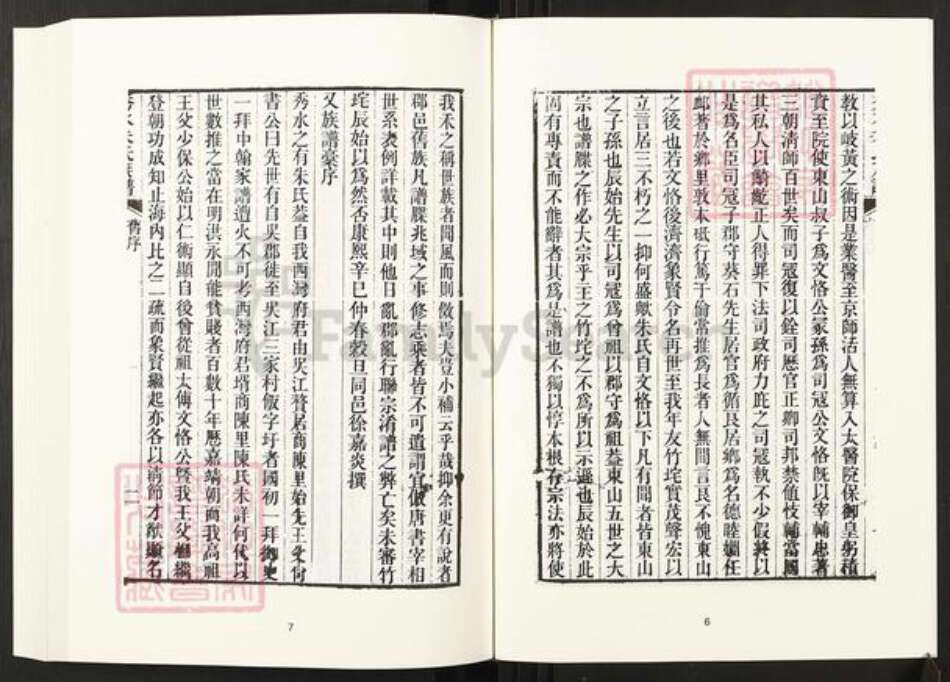 教以岐黃之術因是業醫至京師活人無算入太醫院保御皇躬積
資至院使東山叔子爲文恪公冢孫爲司寇公文恪旣以宰輔忠著
三朝清師百世矣而司寇復以銓司歷官正卿司邦禁値忮輔當國
其私人以齮齕正人得罪下法司政府力庇之司寇執不少假將以
是爲名臣司寇子郡守葵石先生居官爲循良居鄉爲名德睦婣任
卹著於鄉里敦本砥行篤于倫常推爲長者人無間言良不愧東山
之後也若文恪後濟濟象賢令名再世至我年友竹垞實茂聲宏以
立言居三不朽之一抑何盛歟朱氏自文恪以下凡有聞者皆東山
之子孫也辰始先生以司寇爲曾祖以郡守爲祖葢東山五世之大
宗也譜牒之作必大宗乎主之竹垞之不爲所以示遜也辰始於此
固有專責而不能辭者其爲是譜也不獨以惇本根存宗法亦將使
6
我禾之稱世族者聞風而則傚焉夫豈小補云乎哉抑余更有說者
郡邑舊族凡譜牒兆域之事修志乘者皆不可遺謂宜倣唐書宰相
世系表例詳載其中則他日亂郡亂行聯宗淆譜之弊亡矣未審竹
垞辰始以爲然否康熙辛巳仲春穀旦同邑徐嘉炎撰
又族譜稾序
秀水之有朱氏葢自我西灣府君由吳江贅居商陳里始先王父何
書公曰先世有自吳郡徙至吳江三家村飯字圩者國初一拜御史
一拜中翰家譜遭火不可考西灣府君壻商陳里陳氏未詳何代以
世數推之當在明洪永間能貧賤者百數十年歷嘉靖朝而我高祖
王父少保公始以仁術顯自後曾從祖太傅文恪公曁我王父相繼
登朝功成知止海內比之二疏而象賢繼起亦各以清節才猷顯名
秀水朱氏族譜
舊序
二
7
FamilySearch